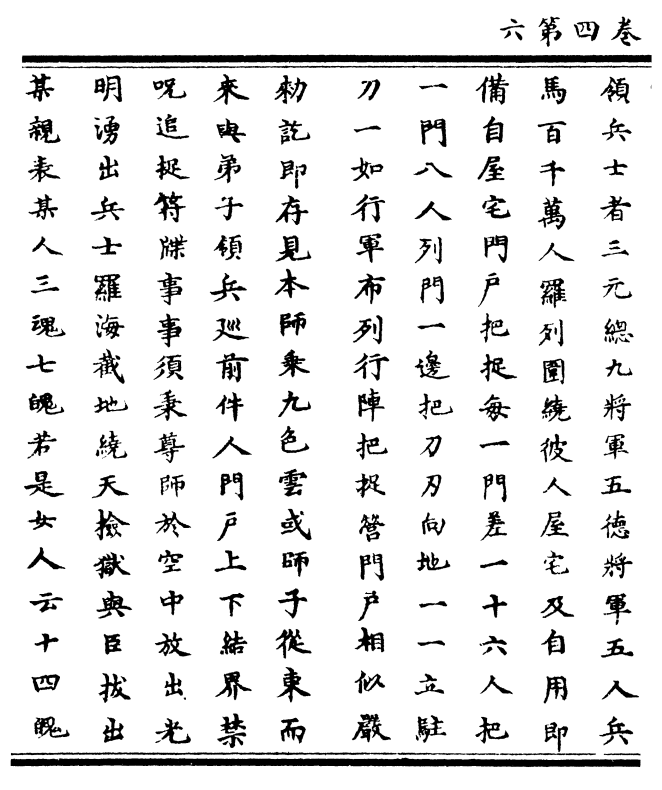 六第四卷
領兵士者三元總九將軍五德將軍五人兵
馬百千萬人羅列圍繞彼人屋宅及自用即
備自屋宅門戶把捉每一門差一十六人把
一門八人列門一邊把刀刃向地一一立駐
刀一如行軍布列行陣把捉營門戶相似嚴
勑訖即存見本師乘九色雲或師子從東而
來與弟子領兵巡前件人門戶上下結界禁
呪追捉符牒事事須秉尊師於空中放出光
明湧出兵士羅海截地繞天撿獄與臣拔出
某親表某人三魂七魄若是女人云十四魄